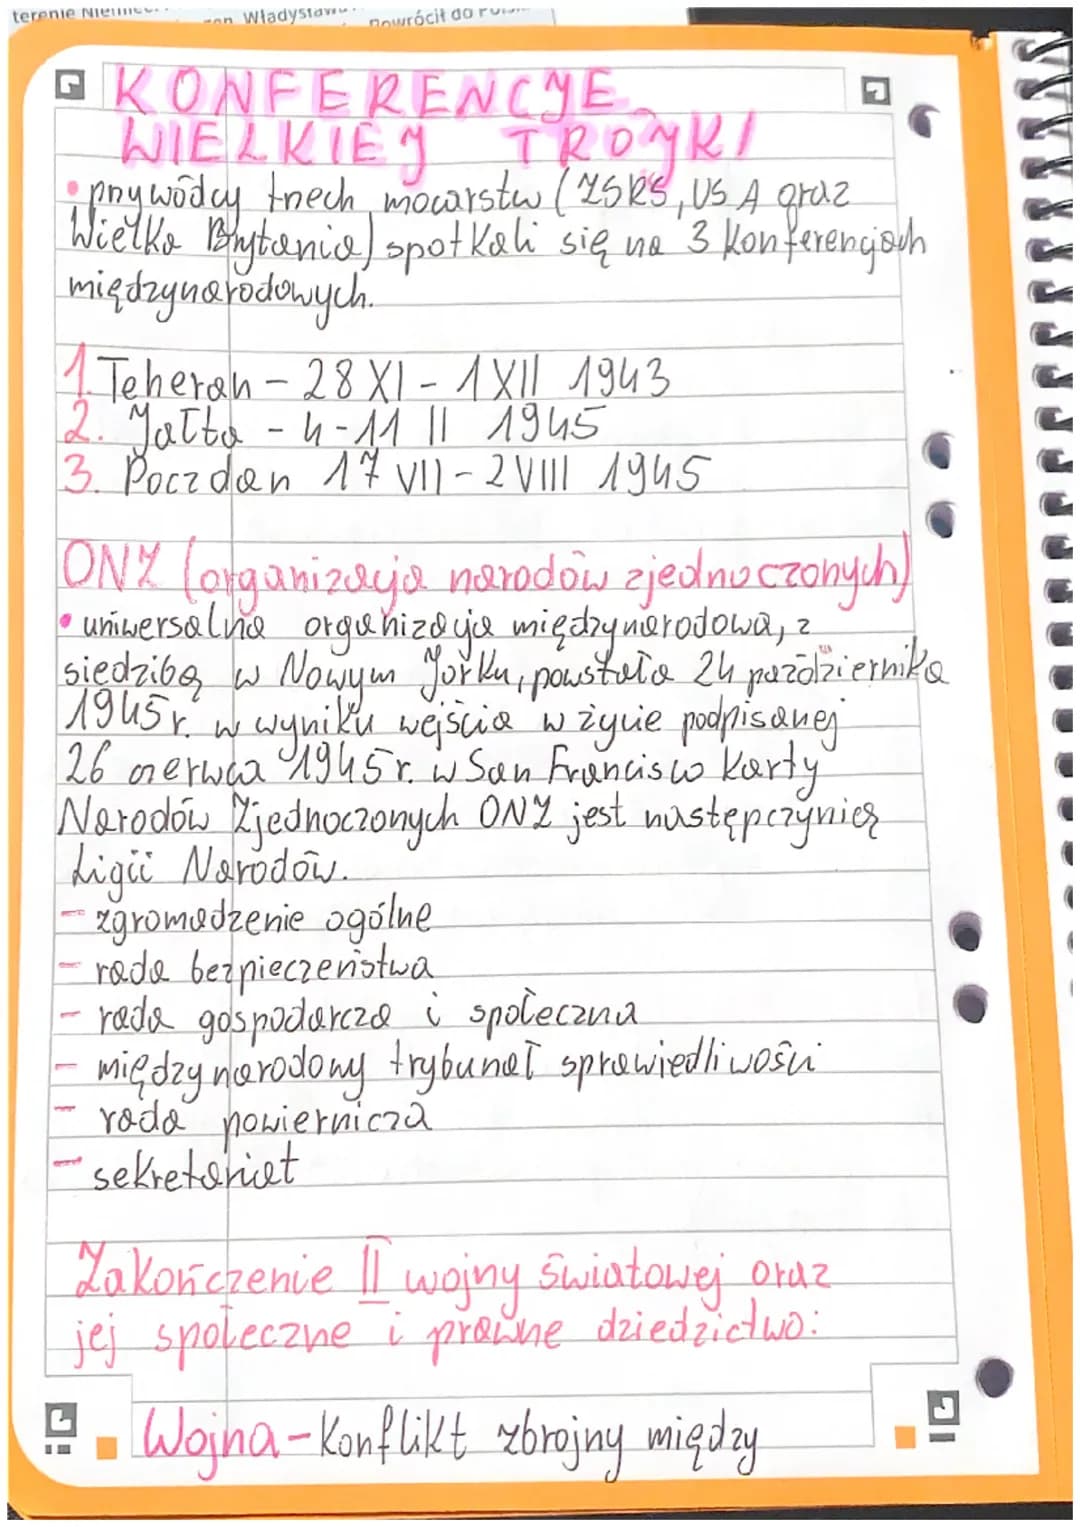 terenie
Władysław
powrócił do
KONFERENCJE
WIELKIEJ TRÓJKI
• przywódcy trzech mocarstw (ZSRS, USA oraz
Wielka Brytania) spotkali się na 3 konferencjach
międzynarodowych.
1. Teheran - 28 XI - 1 XII 1943
2. Jałta - 4-11 II 1945
3. Poczdam 17 VII - 2 VIII 1945
ONZ (organizacja narodów zjednoczonych)
• uniwersalna organizacja międzynarodowa, z
siedzibą w Nowym Jorku, powstała 24 października
1945 r. w wyniku wejścia w życie podpisanej
26 czerwca 1945 r. w San Francisco Karty
Narodów Zjednoczonych ONZ jest następczynią
Ligii Narodów.
- zgromadzenie ogólne
- rada bezpieczeństwa
- rada gospodarcza i społeczna
- międzynarodowy trybunał sprawiedliwości
- rada powiernicza
- sekretariat
Zakończenie II wojny światowej oraz
jej społeczne i prawne dziedzictwo:
Wojna - Konflikt zbrojny między